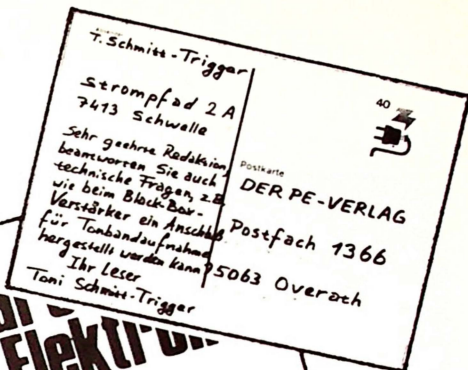 T. Schmitt-Trigger
Strompfad 2A
7413 Schwelle
Sehr geehrte Redaktion,
beantworten Sie auch
technische Fragen, z.B.
wie beim Black-Box-
Verstärker ein Anschluß
für Tonbandaufnahme
hergestellt werden kann?
Ihr Leser
Toni Schmitt-Trigger
40
Postkarte
DER PE-VERLAG
Postfach 1366
5063 Overath
Elektron